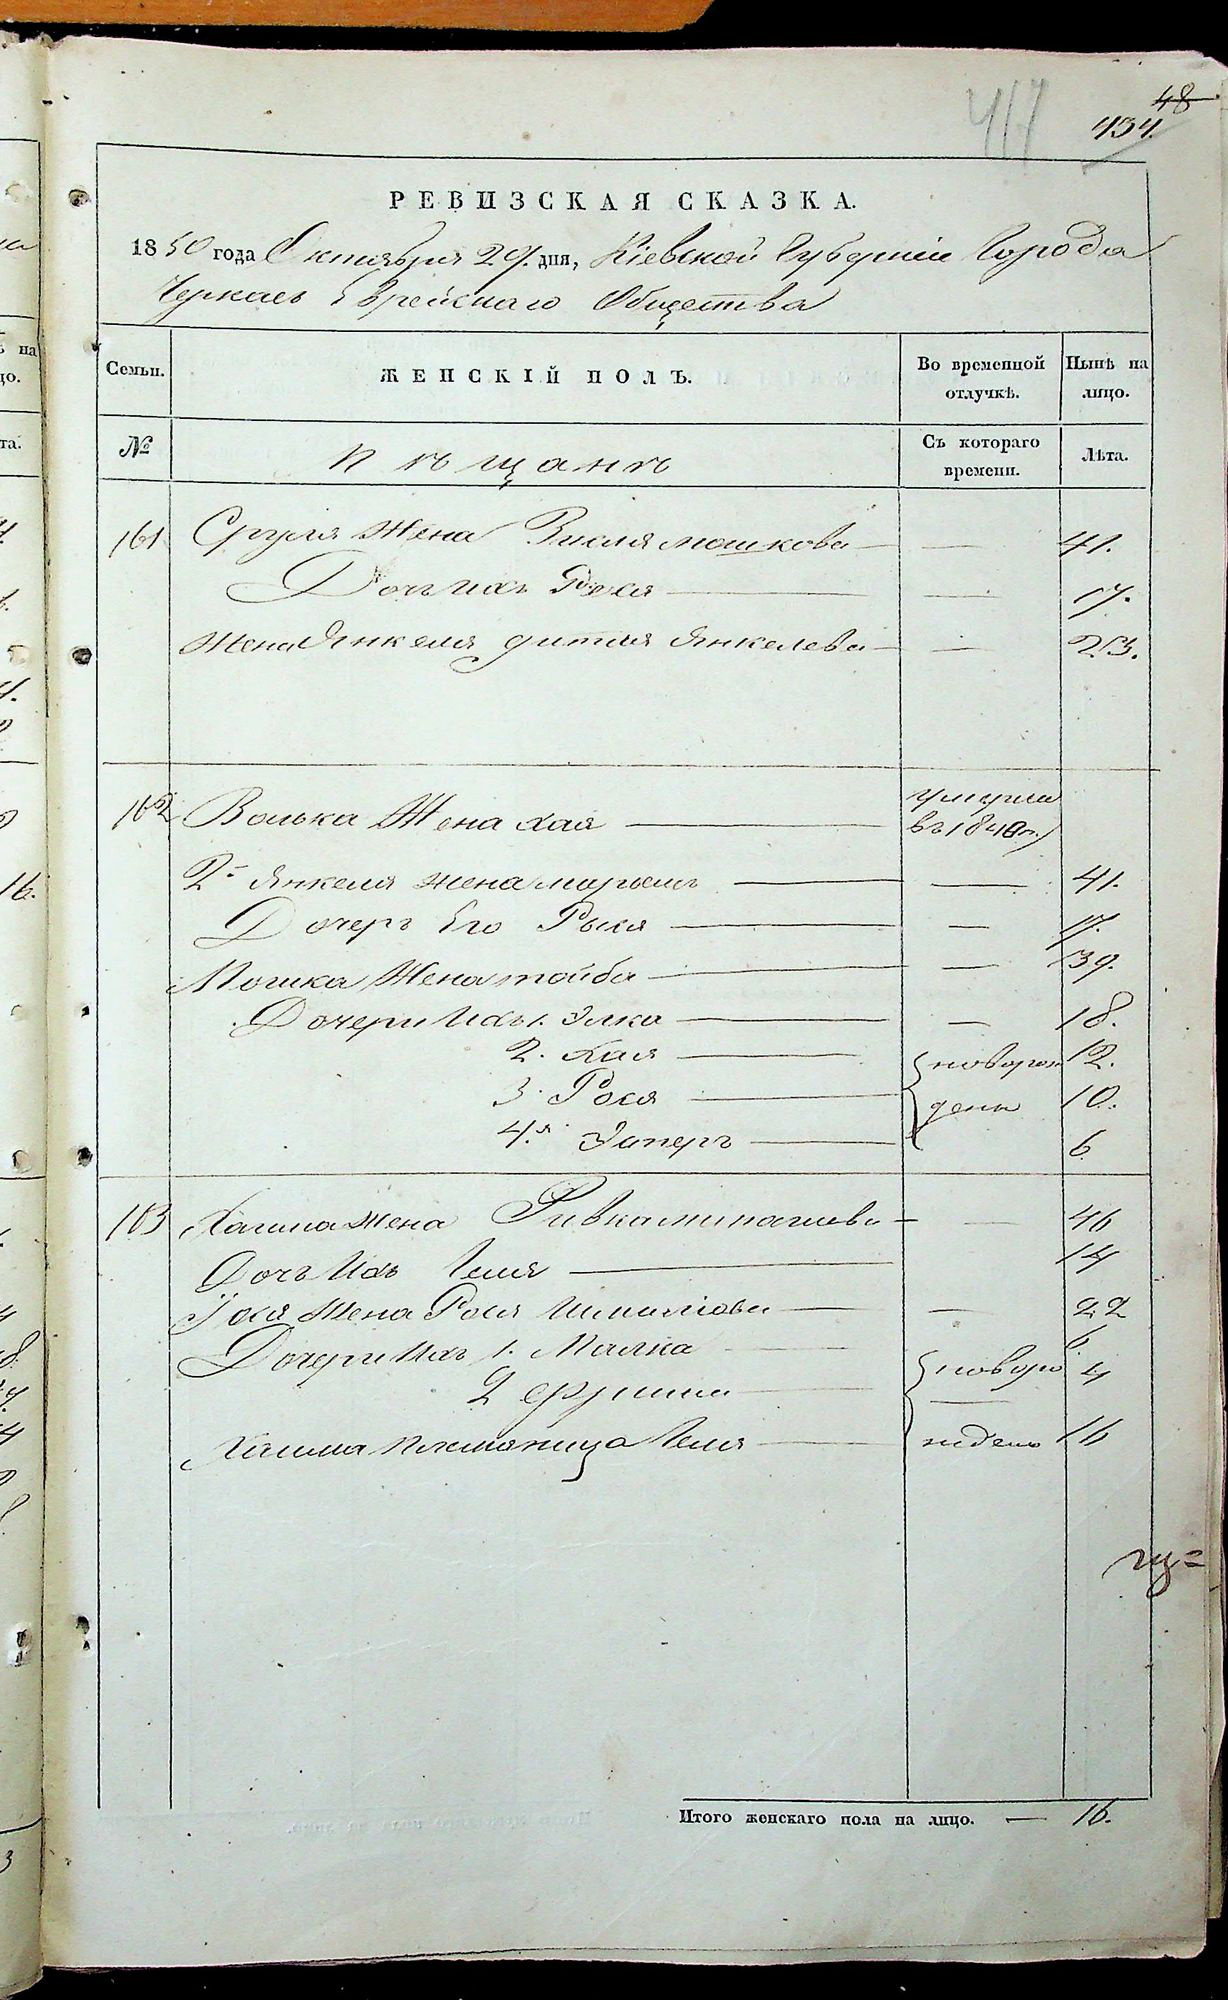 417
48
434.
РЕВИЗСКАЯ СКАЗКА.
1850 года Октября 29. дня, Кіевской Губерніи Города
Черкасъ Еврейскаго Общества
Семьи. ЖЕНСКІЙ ПОЛЪ. Во временной отлучкѣ. Нынѣ на лицо.
№ Мѣщанѣ Съ котораго времени. Лѣта.
161 Сруля Жена Мошкова — — 41.
Дочь Ихъ Рохля — — 17.
Жена Янкеля Янкелева — — 23.
162 Волька Жена Хая — умерла въ 1840 г.
2- Янкеля жена Марьемъ — — 41.
Дочерь Его Рыся — — 17.
Мошка Жена Тойба — — 39.
Дочери Ихъ 1. Элка — — 18.
2. Хая — новорож 12.
3. Рося — дени 10.
4.я Эстеръ — 6
163 Хаима Жена Ривка — — 46
Дочь Ихъ Геля — 14
Жена Рося — — 22
Дочери Ихъ 1. Малка — новоро 6.
2 — — 4
Хаима племяница Геля — 16
Итого женскаго пола на лицо. — 16.